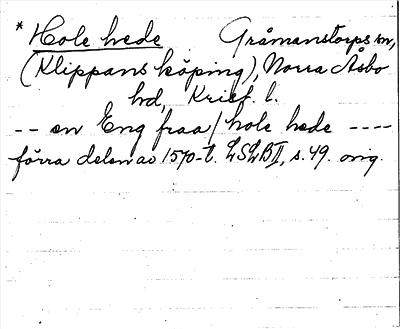 * Hole hede Gråmanstorps sn,
(Klippans köping), Norra Åsbo
hd, Krist. l.
-- en Eng fraa / hole hede ----
förra delen av 1570-t. LSLBII, s. 49. orig.